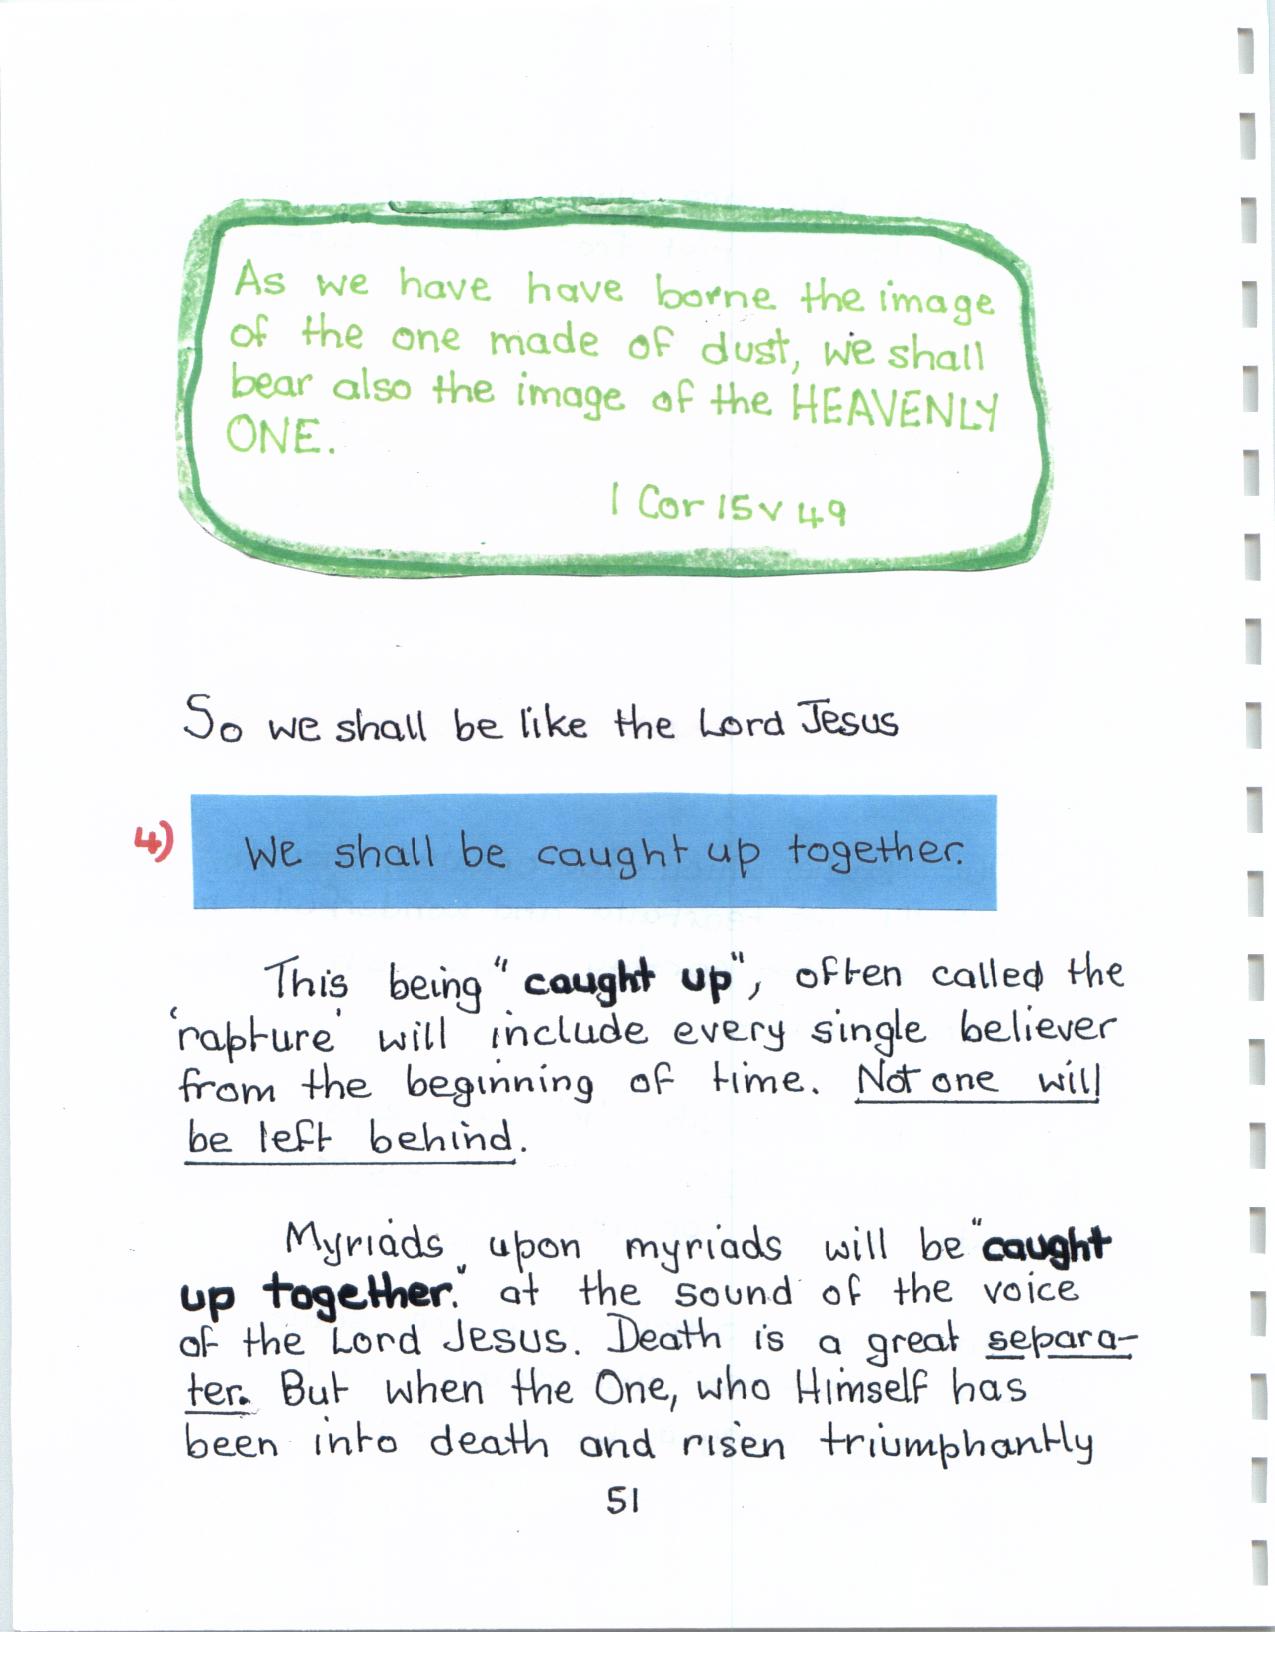 As we have have borne the image
of the one made of dust, we shall
bear also the image of the HEAVENLY
ONE.
1 Cor 15 v 49
So we shall be like the Lord Jesus
4) We shall be caught up together.
This being "caught up", often called the
'rapture' will include every single believer
from the beginning of time. Not one will
be left behind.
Myriads upon myriads will be "caught
up together." at the sound of the voice
of the Lord Jesus. Death is a great separa-
ter. But when the One, who Himself has
been into death and risen triumphantly
51